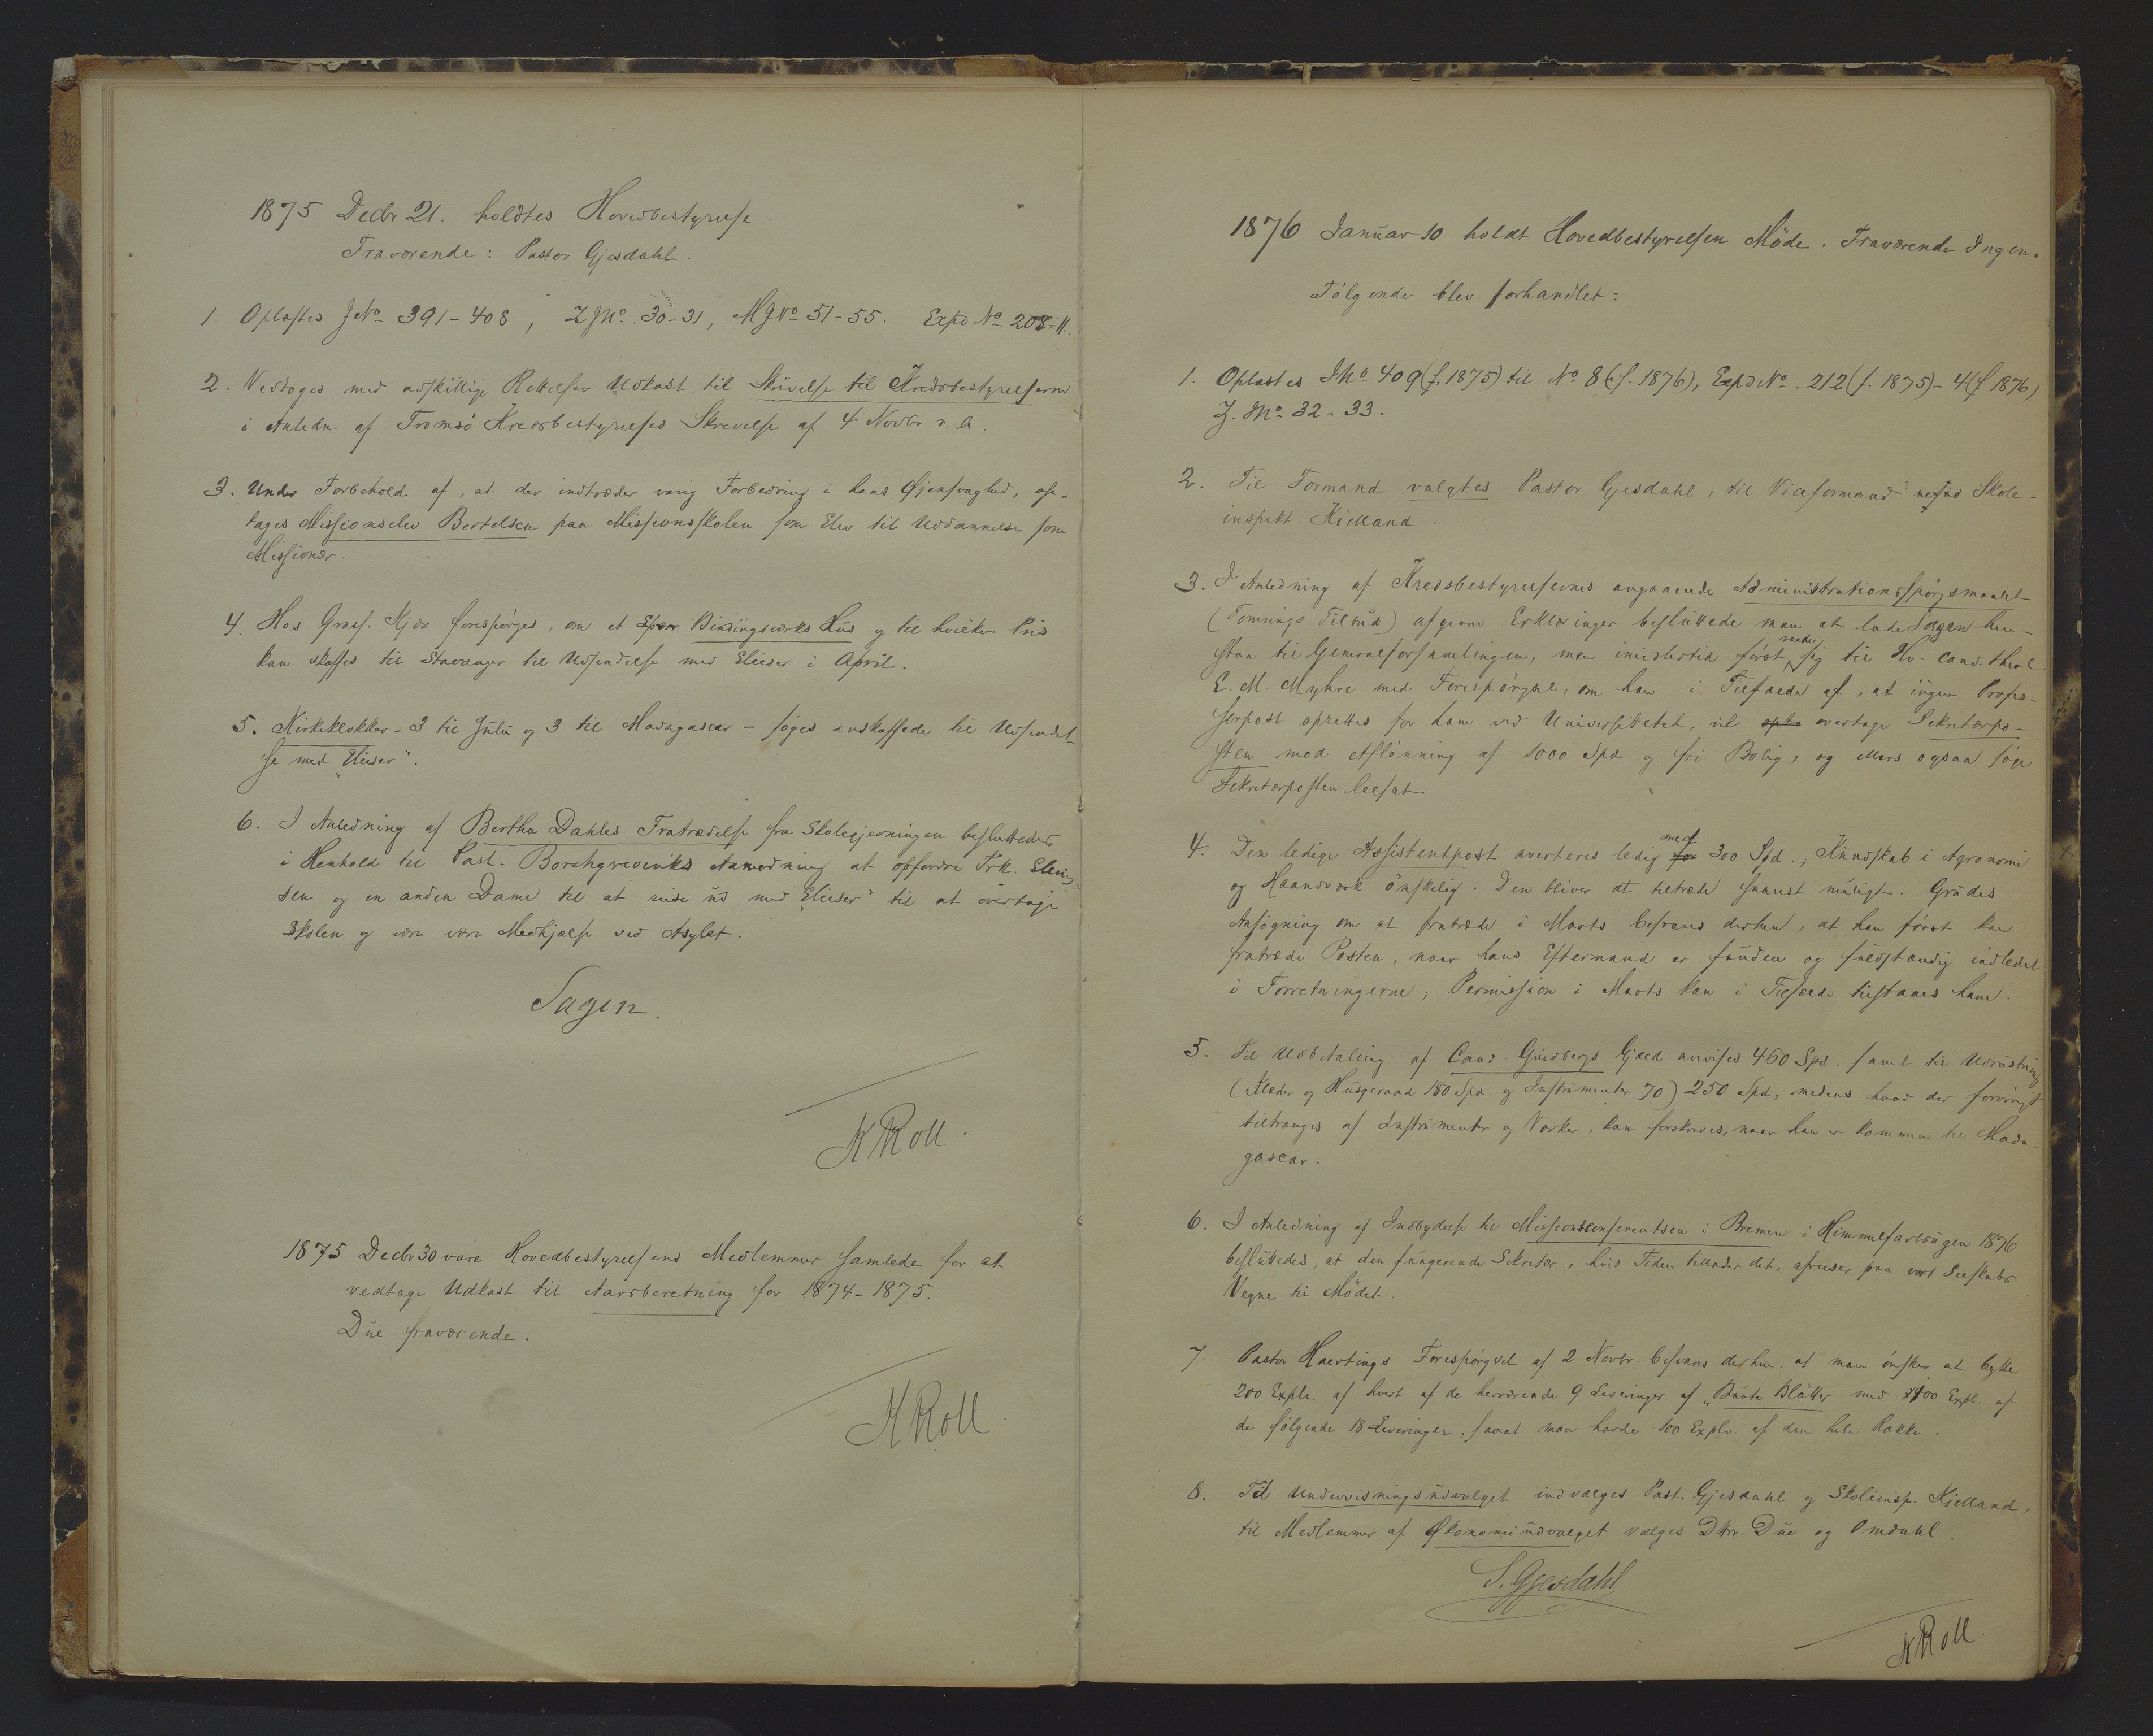 1875 Decbr 21. holdtes Hovedbestyrelse.
Fraværende: Pastor Gjesdahl.
1. Oplæstes J No 391-408, Z J No 30-31, M J No 51-55. Expd No 208-11.
2. Vedtoges med adskillige Rettelser Udkast til Skrivelse til Kredsbestyrelserne
i Anledn. af Tromsö Kredsbestyrelses Skrivelse af 4 Novbr d. A.
3. Under Forbehold af, at der indtræder varig Forbedring i hans Øiensvaghed, op-
tages Missionselev Bertelsen paa Missionsskolen som Elev til Uddannelse som
Missionær.
4. Hos Gross. Kjær forespørges, om et Bindingsværks Hus og til hvilken Pris
kan skaffes til Stavanger til Udsendelse med Elieser i April.
5. Kirkeklokker - 3 til Zulu og 3 til Madagascar - søges anskaffede til Udsendel-
se med "Elieser".
6. I Anledning af Bertha Dahles Fratrædelse fra Skolegjerningen besluttedes
i Henhold til Past. Borchgrevinks Anmodning at opfordre Frk.
sen og en anden Dame til at reise ud med "Elieser" til at overtage
Skolen og være Medhjælp ved Asylet.
Sagen.
K Roll.
1875 Decbr 30 vare Hovedbestyrelsens Medlemmer samlede for at
vedtage Udkast til Aarsberetning for 1874-1875.
Due fraværende.
K Roll
1876 Januar 10 holdt Hovedbestyrelsen Möde. Fraværende Ingen.
Følgende blev forhandlet:
1. Oplæstes J No 409 (f. 1875) til No 8 (f. 1876), Expd No. 212 (f. 1875) - 4 (f 1876)
Z. J No 32-33.
2. Til Formand valgtes Pastor Gjesdahl, til Viceformand Skole-
inspekt. Kielland.
3. I Anledning af Kredsbestyrelsernes angaaende Administrationsspørgsmaalet
( Tilbud) afgivne Erklæringer besluttede man at lade Sagen hen-
staa til Generalforsamlingen, men imidlertid først vende sig til Hr. cand. theol.
E. M. Myhre med Forespørgsel, om han i Tilfælde af, at ingen Profes-
sorpost oprettes for ham ved Universitetet, vil overtage Sekretærpo-
sten mod Aflønning af 1000 Spd og fri Bolig, og ogsaa
Sekretærposten besat.
4. Den ledige Assistentpost averteres ledig med 300 Spd.; Kundskab i Agronomi
og Haandværk ønskelig. Den bliver at tiltræde snarest muligt. Grudes
Ansøgning om at fratræde i Marts besvares derhen, at han først kan
fratræde Posten, naar hans Eftermand er funden og fuldstændig indledet
i Forretningerne; Permission i Marts kan i Tilfælde tilstaaes ham.
5. Til Udbetaling af Cand. Guldbergs Gjæld anvises 460 Spd. samt til Udrustning
(Klæder og Husgeraad 180 Spd. og Instrumenter 70) 250 Spd, medens hvad der forøvrigt
tiltrænges af Instrumenter og Værker, kan forskrives, naar han er kommen til Mada-
gascar.
6. I Anledning af Indbydelse til Missionsconferentsen i Bremen i Himmelfartsugen 1876
besluttedes, at den fungerende Sekretær, hvis Tiden tillader det, afreiser paa vort Selskabs
Vegne til Mödet.
7. Pastor Haertings Forespørgsel af 2 Novbr. besvares derhen, at man ønsker at bytte
200 Explr. af hvert af de herværende 9 Leveringer af "Bunte Blätter med 100 Expl. af
de følgende 18 Leveringer, saaat man havde 100 Explr. af den hele Række.
8. Til Undervisningsudvalget indvælges Past. Gjesdahl og Skoleinsp. Kielland,
til Medlemmer af Økonomiudvalget vælges DHrr. Due og Omdahl.
S. Gjesdahl
K Roll.